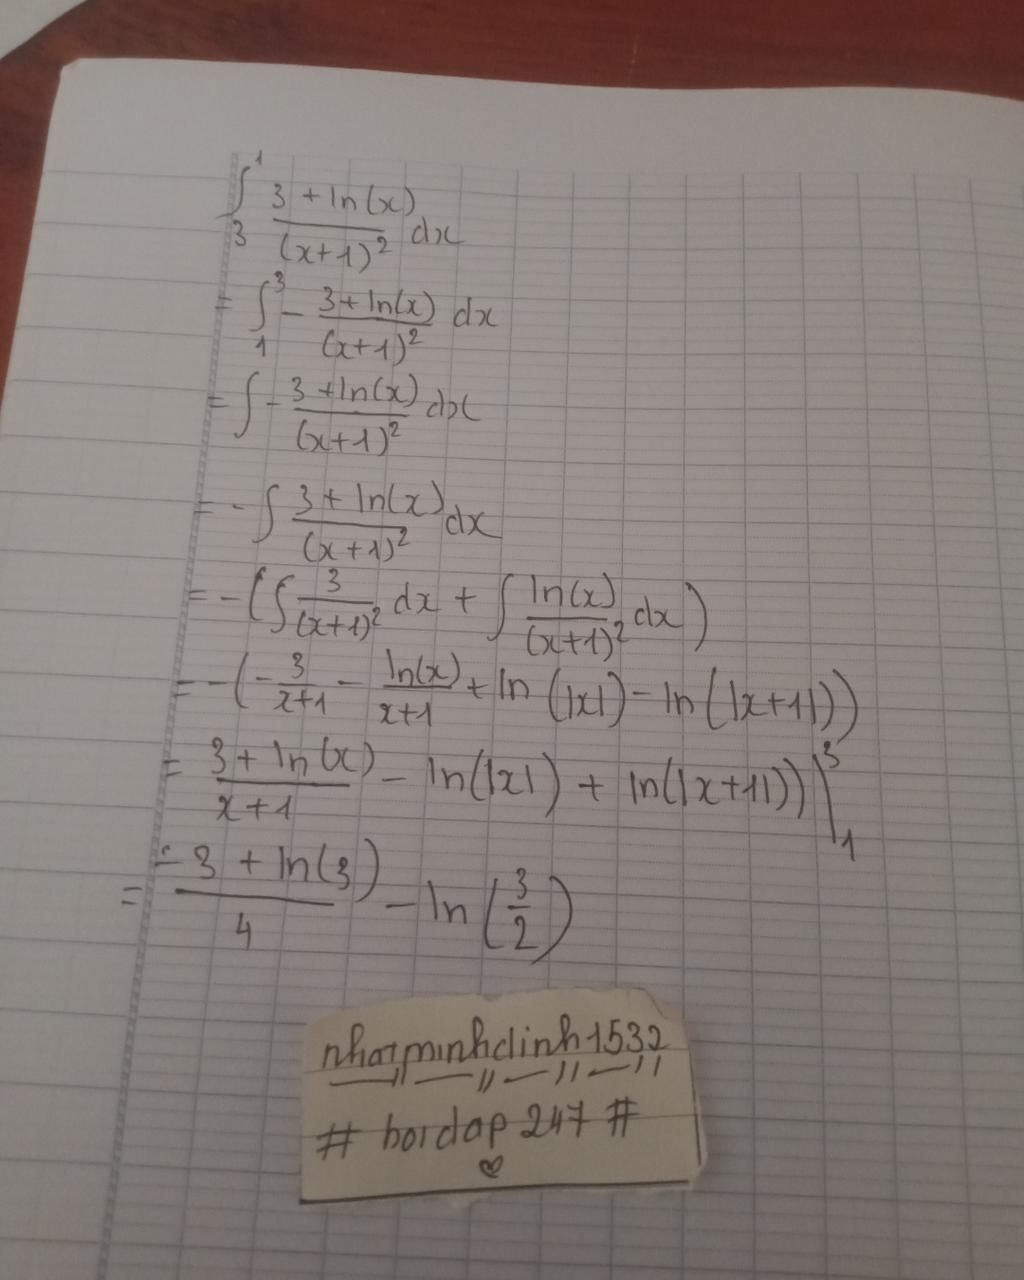 ∫₃¹ (3 + ln(x))/((x+1)²) dx
= ∫₁³ - (3 + ln(x))/((x+1)²) dx
= ∫ - (3 + ln(x))/((x+1)²) dx
= - ∫ (3 + ln(x))/((x+1)²) dx
= - (∫ 3/((x+1)²) dx + ∫ ln(x)/((x+1)²) dx)
= - (- 3/(x+1) - ln(x)/(x+1) + ln(|x|) - ln(|x+1|))
= (3 + ln(x))/(x+1) - ln(|x|) + ln(|x+1|)) |₁³
= (-3 + ln(3))/4 - ln(3/2)
nhatminhdinh1532
# boidap 247 #